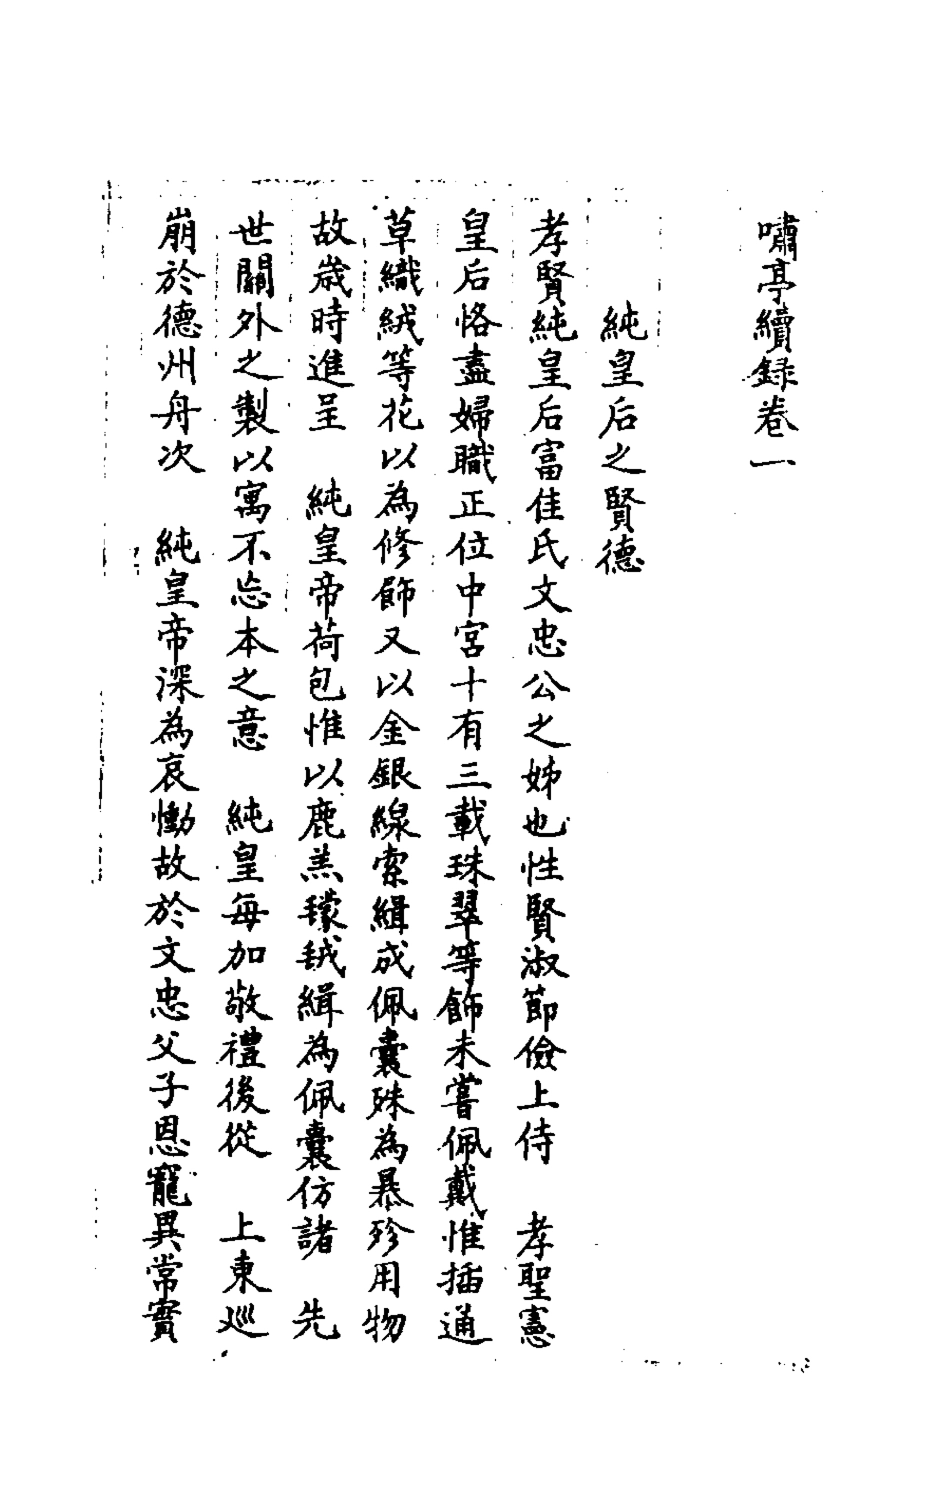 嘯亭續録卷一
純皇后之賢德
孝賢純皇后富佳氏文忠公之姊也性賢淑節儉上侍　孝聖憲
皇后恪盡婦職正位中宮十有三載珠翠等飾未嘗佩戴惟插通
草織絨等花以為修飾又以金銀線索緝成佩囊殊為暴殄用物
故歲時進呈　純皇帝荷包惟以鹿羔氋毧緝為佩囊仿諸　先
世關外之製以寓不忘本之意　純皇每加敬禮後從　上東巡
崩於德州舟次　純皇帝深為哀慟故於文忠父子恩寵異常實